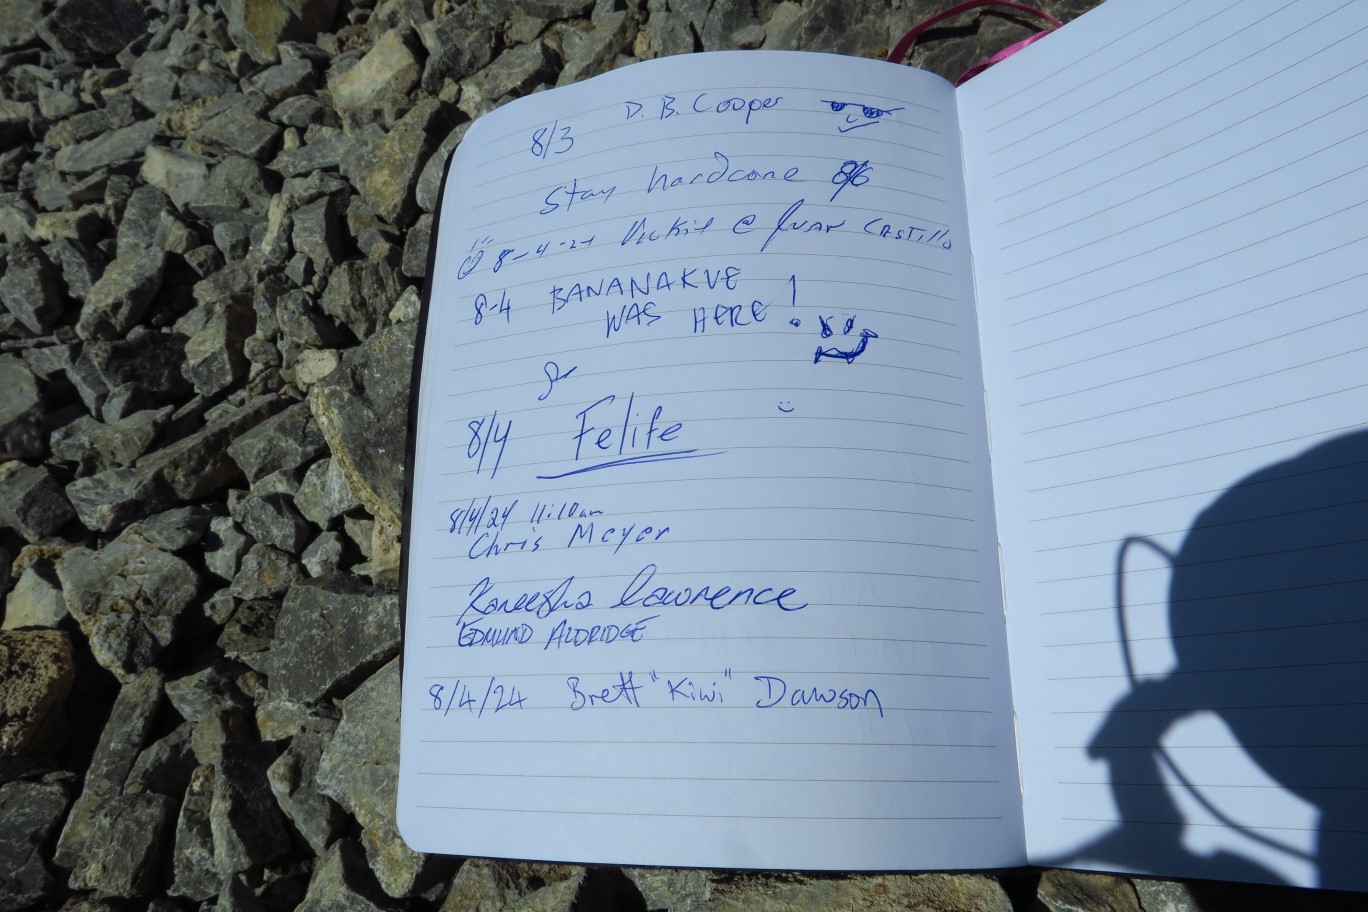 8/3 D. B. Cooper
Stay hardcore 8/6
8-4-24 @ Juan Castillo
8-4 BANANAKVE
WAS HERE !
8/4 Felife
8/4/24 11:10am
Chris Meyer
Kaneesha Lawrence
EDMUND ALDRIDGE
8/4/24 Brett "Kiwi" Dawson